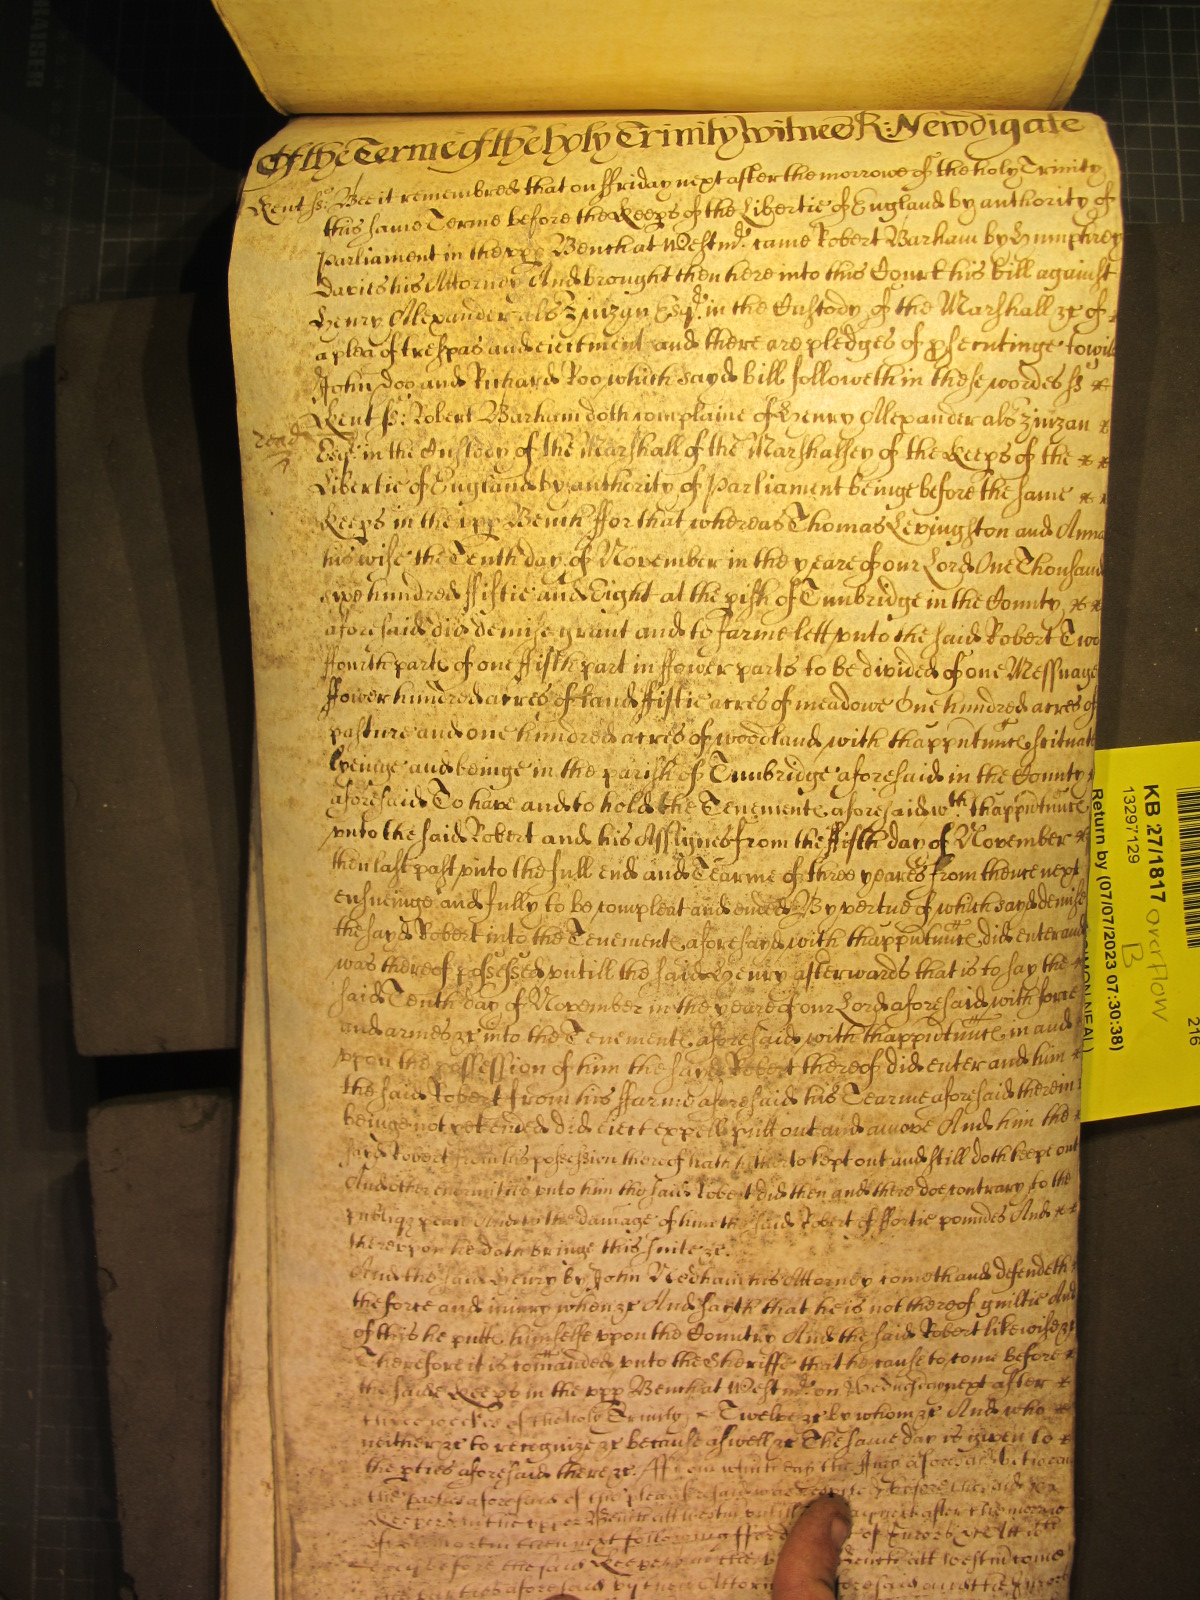 Of the Terme of the holy Trinity witnes R: Newdigate
Kent ss: Bee it remembred that on ffriday next after the morrowe of the holy Trinity
this same Terme before the Keeps of the Libertie of England by authority of
Parliament in the vpp Bench at Westmr. came Robert Barham by Humphrey
Davies his Attorney And brought then here into this Court his bill against
Henry Alexander als Zinzan Esqr. in the Custody of the Marshall &c of
a plea of trespas and eiectment and there are pledges of psecutinge towitt
John Doo and Richard Roo which sayd bill followeth in these wordes ss
Kent ss: Robert Barham doth complaine of Henry Alexander als Zinzan
read
Esqr. in the Custody of the Marshall of the Marshalsey of the Keeps of the
Libertie of England by authority of Parliament beinge before the same
Keeps in the vpp Bench ffor that whereas Thomas Levingston and Anna
his wife the Tenth day of November in the yeare of our Lord One Thousand
sixe hundred ffiftie and Eight at the pish of Tunbridge in the County
aforesaid did demise grant and to farme lett vnto the said Robert Two
ffourth parts of one ffifth part in ffower parts to be divided of one Messuage
ffower hundred acres of land ffiftie acres of meadowe One hundred acres of
pasture and one hundred acres of woodland with thapputnnce scituate
lyeinge and beinge in the parish of Tunbridge aforesaid in the County
aforesaid To have and to hold the Tenemente aforesaid wth. thapputnnce
vnto the said Robert and his Assignes from the ffifth day of November
then last past vnto the full end and Tearme of three yeares from thence next
ensueinge and fully to be compleat and ended By vertue of which sayd demise
the sayd Robert into the Tenemente aforesayd with thapputnnce did enter and
was thereof possessed vntill the said Henry afterwards that is to say the
said Tenth day of November in the yeare of our Lord aforesaid with force
and armes &c into the Tenemente aforesaid with thapputnnce in and
vpon the possession of him the sayd Robert thereof did enter and him
the said Robert from his ffarme aforesaid his Tearme aforesaid therein
beinge not yet ended did eiect expell putt out and amove And him the
sayd Robert from his possession thereof hath hitherto kept out and still doth keepe out
And other enormities vnto him the said Robert did then and there doe contrary to the
publiq peace And to the damage of him the said Robert of ffortie poundes And
therevpon he doth bringe this suite &c.
And the said Henry by John Nedham his Attorney cometh and defendeth
the force and iniury when &c And saith that he is not thereof guiltie And
of this he putts himselfe vpon the Country And the said Robert likewise &c
Therefore it is comanded vnto the Sheriffe that he cause to come before
the same Keeps in the vpp Bench at Westmr. on Wednesday next after
three weekes of the holy Trinity Twelve &c by whom &c And who
neither &c to recognize &c because aswell &c The same day is given to
the pties aforesaid there &c. aforesaid betweene
the parties aforesaid of the plea aforesaid was before the said
Keepers in the vpper Bench att Westm vntill next after the morrow
of next following of Att
day before the said Keepers in the Bench att Westm come
the parties aforesaid by their Attorn aforesaid and the
KB 27/1817 overflow
B
13297129
Return by (07/07/2023 07:30:38)
SIMON NEAL)
216